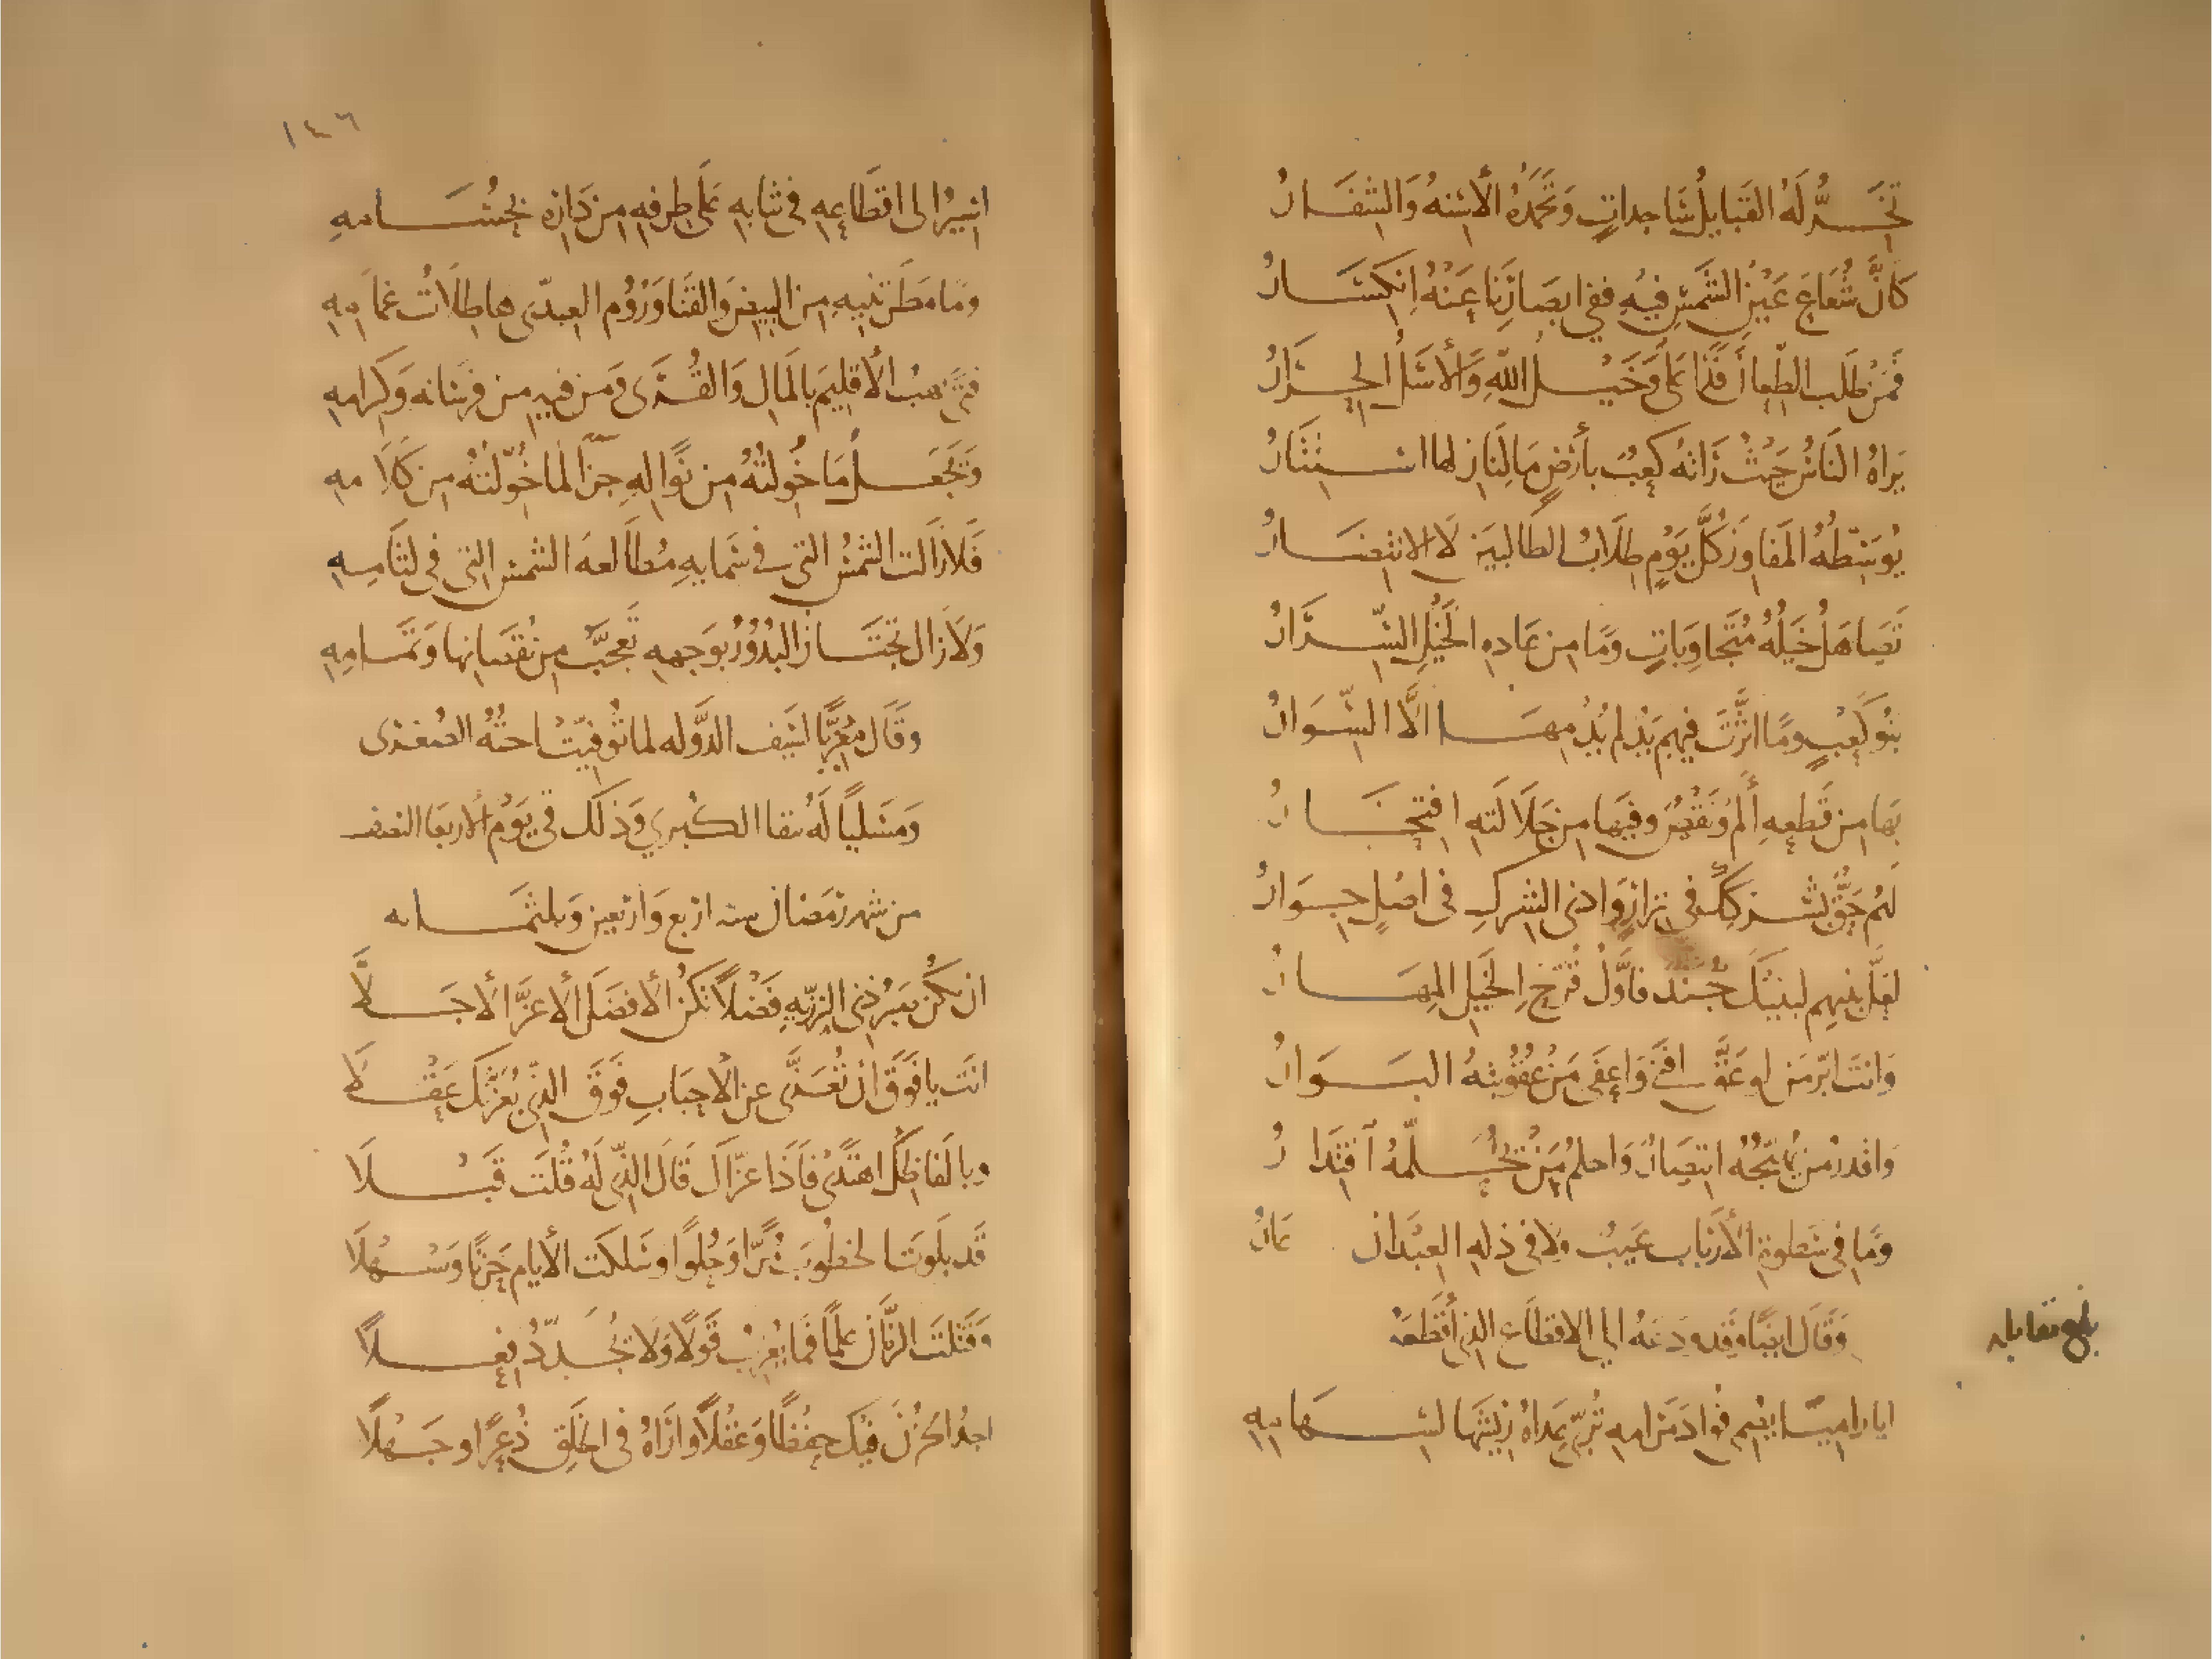 تَخِرُّ لَهُ القَبَايِلُ سَاجِداتٍ وَتَحْمَدُهُ الأَسِنَّهُ وَالشِّفَارُ
كَأنَّ شُعَاعَ عَيْنِ الشَّمْسِ فِيهِ ففي ابصَارِنَا عَنْهُ اِنكِسَارُ
فَمَنْ طَلَبَ الطِّعانَ فَذَا عَلىٌّ وَخَيْلُ اللهِ وَالأَسَلُ الحِرَارُ
يَراهُ النَّاسُ حَيْثُ رَاتهُ كَعبٌ بأَرْضٍ مَا لِنَازِلها استِتَارُ
يُوَسِّطُهُ المَفَاوِزَ كُلَّ يَوْمٍ طِلَابُ الطَّالبِينَ لَا الانتِصَارُ
تَصَاهَلُ خَيْلُهُ مُتَجَاوِبَاتٍ وَمَا مِن عَادهِ الخَيْلِ السِّرَارُ
بَنُو كَعْبٍ وَمَا اثَّرْتَ فِيهِم يَدٌ لم يُدْمِهَا الَّا السِّوَارُ
بَها مِن قَطعِهِ أَلَمٌ وَنَقْصٌ وَفيهَا مِن جَلَالَتهِ افتِخَارُ
لَهُم حَقٌّ بشِركِكَ في نِزارٍ وَادنى الشركِ في اصْلٍ جِوَارُ
لعَلَّ بنِيهِم لبَنيكَ جُنْدٌ فَاوَّلُ قُرَّحِ الخَيْلِ المِهَارُ
وَانتَ ابَرّ مَن لو عُقَّ افنى وَاعفَى مَنْ عُقُوبتهُ البَوَارُ
وَاقدرُ مَن يُهَيِّجُهُ انتِصَارٌ وَاحلمُ مَنْ يُحَلِّمُهُ اقتِدَارُ
وَمَا في سَطوةِ الأَرْبَابِ عَيبٌ وَلا في ذِلهِ العِبْدَانِ عَارُ
وَقَالَ ايضًا وَقَد وَدعَهُ الى الاقطَاعِ الذي أَقْطَعَهُ
بلغ مقابله
ايا رَاميًا يُصْمِي فُوادَ مَرَامهِ تُرَبّي عِدَاهُ رِيشَهَا لسِهَامِهِ
١٤٦
اسِيرُ الى اقطَاعِهِ في ثيابِهِ عَلى طِرفِهِ مِن دَارِهِ بِحُسَامِهِ
وَمَا مَطَرَتنِيهِ مِنَ البِيضِ وَالقَنَا وَرُوْمِ العِبدّى هاطِلَاتُ غَمَامِهِ
فَتًى يَهَبُ الأَقلِيمَ بالمَالِ وَالقُرَى وَمَن فيهِ مِن فرسَانهِ وَكِرَامِهِ
وَيَجْعَلُ مَا خُولتُهُ مِن نَوَالِهِ جزَآ لمَا خُوّلتُهُ مِن كَلَامِهِ
فَلَا زَالَت الشَّمْسُ التي في سَمَايهِ مُطَالعهَ الشمسِ التي في لِثَامِهِ
وَلَا زَالَ تَجتَازُ البُدُوْرُ بوَجههِ تَعَجَّبُ مِن نُقصَانِها وَتَمَامِهِ
وقَالَ مُعَزِّيًا لسَيف الدَّوله لما تُوفِيّت اختُهُ الصُغرَى
وَمُسَليًا لَهُ ببقا الكُبرى وَذلك في يَوْمِ الأربعَا النصف
مِن شَهر رَمَضَانَ سنه اربَع وَاربَعين وَثلثمَايه
ان يَكُن صَبرُ ذي الرزِيّهِ فَضْلًا تَكُنِ الأَفضَلَ الأَعَزَّ الأَجَلَّا
انتَ يا فَوقَ ان تُعَزَّى عن الأَحبَابِ فَوقَ الذي يُعَزّيكَ عَقْلَا
وبالفَاظِكَ اهتَدَى فَاذَا عَزَّاكَ قَالَ الذي لَهُ قُلتَ قَبْلَا
قَد بَلَوتَ الخطُوبَ مُرًّا وَحُلوًا وَسَلكتَ الأَيامَ حَزنًا وَسَهْلَا
وَقَتَلتَ الزَّمَانَ عِلمًا فَمَا يُغرِبُ قَوْلًا وَلَا يُجَدِّدُ فِعلَا
اجِدُ الحُزنَ فيكَ حِفْظًا وَعَقْلًا وَارَاهُ في الخَلقِ ذُعرًا وجَهْلَا